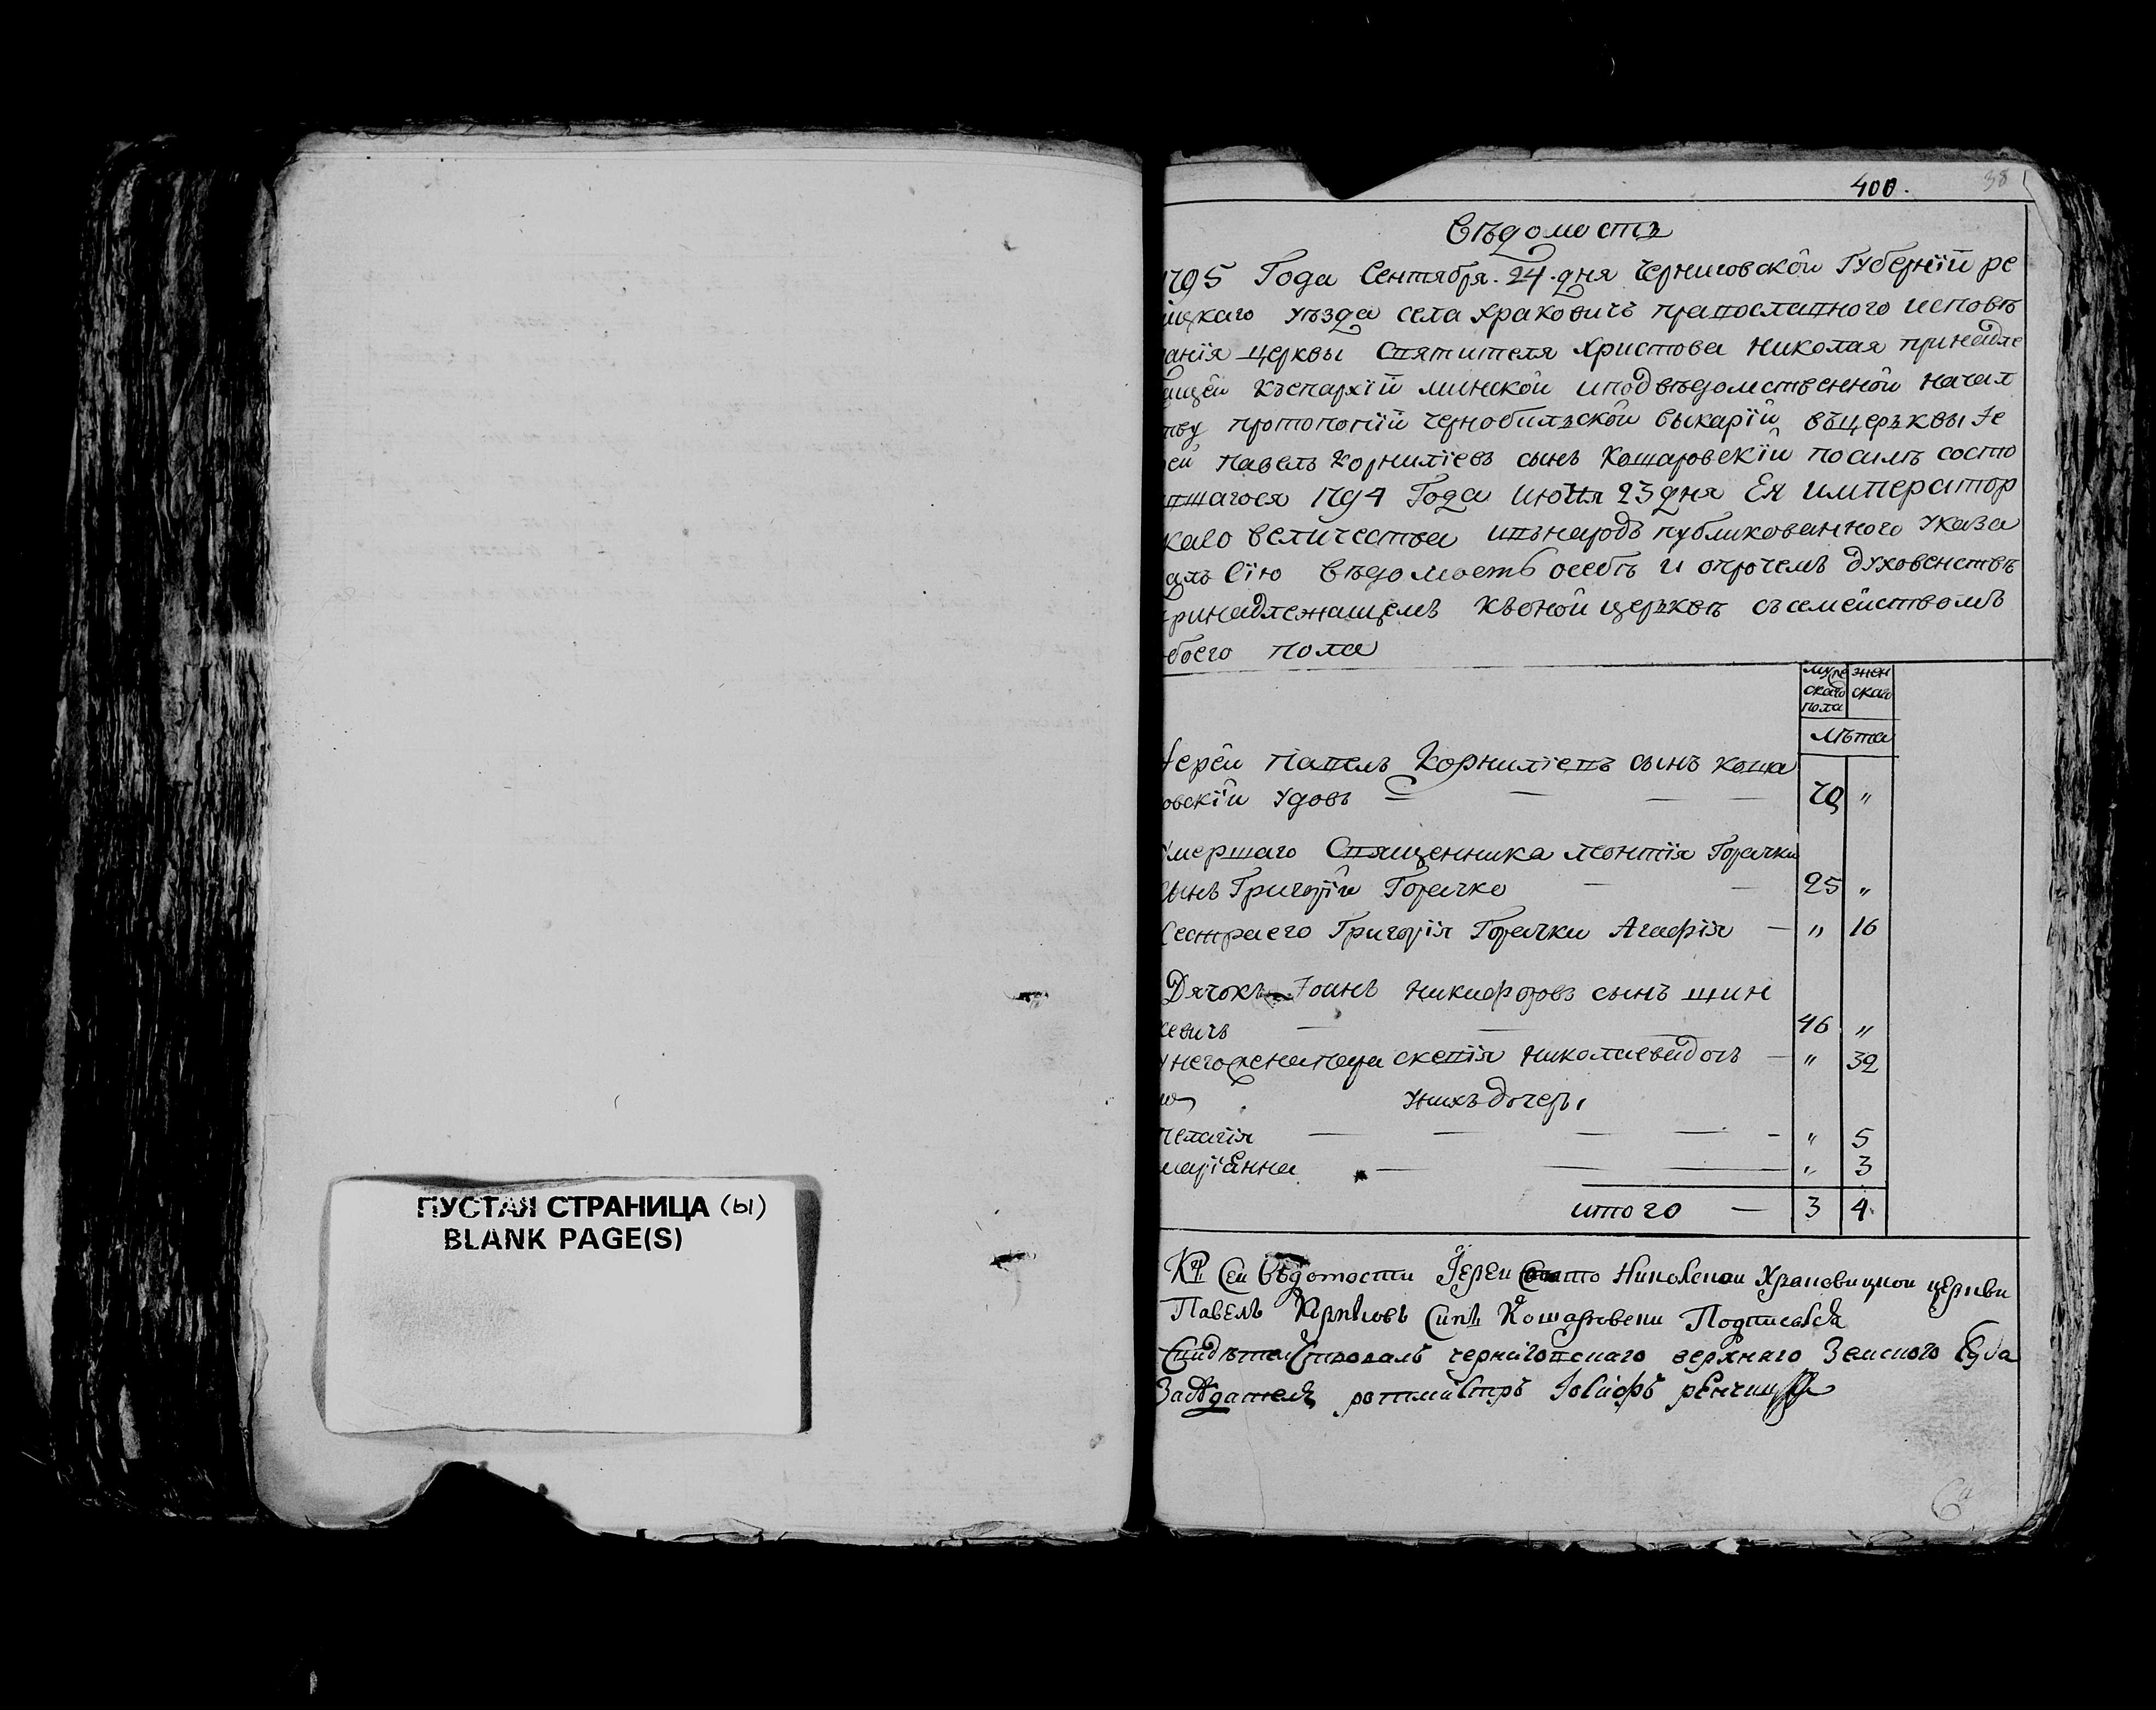 ПУСТАЯ СТРАНИЦА (ы)
BLANK PAGE(S)
400.
38
Вѣдомость
1795 Года Сентября. 24. дня Черниговской Губернїй ре
ицкаго уѣзда села Храковичъ православного исповѣ
анїя церквы Святителя Христова Николая принадле
ащей къепархїй минской иподвѣдомственной начал
тву протопопїй чернобилъской выкарїй, въцеръквы Iе
рей Павелъ Корнилїевъ сынъ Кошаровскїй посилѣ состо
явшагося 1794 Года Июня 23 дня Ея император
каго величества ивънародъ публикованного указа
алъ Сїю вѣдомость осебѣ и опрочемъ духовенствѣ
ринадлежащемъ къоной церъквѣ съсемействомъ
боего пола
муже скаго пола
жен скаго
лѣта
Iерей Павелъ Корнилїевъ сынъ коша
овскїй удовъ — 79 "
умершаго Священника Леонтїя Горачки
сынъ Григорїй Горачко — 25 "
Сестра его Григорїя Горачки Агафїя — " 16
Дячокъ Iоанъ Никифоровъ сынъ шин
кевичъ — 46 "
у него жена параскевїя Николаева доч — " 32
у нихъ дочеры
пелагїя — " 5
марїанна — " 3
итого — 3 4
Къ Сей Вѣдомости Iерей Свято Николской Храковицкой церкви
Павелъ Сынъ Кошаровски Подписался
Свидѣтелствовалъ черниговскаго верхняго Земского Суда
Засѣдатель ротмистръ Iосифъ
6